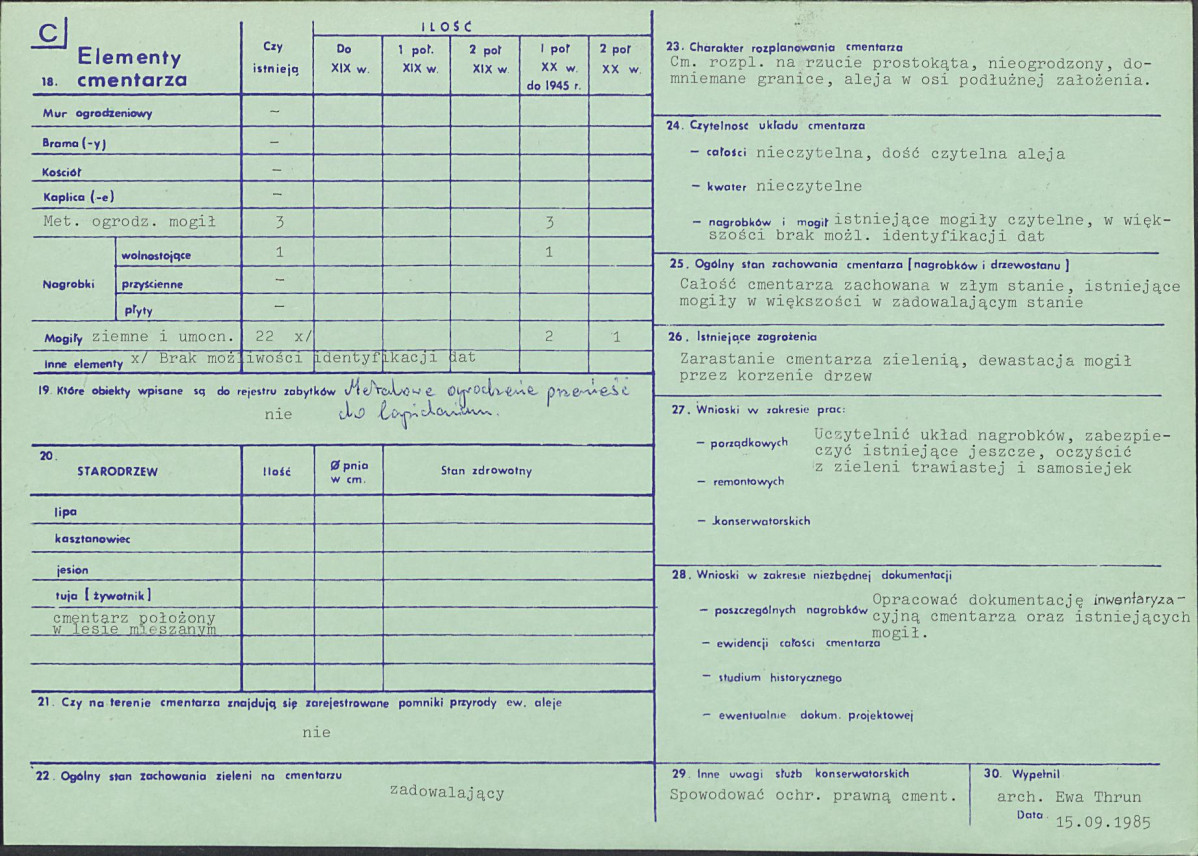 C
18. Elementy cmentarza
Czy istnieją
ILOŚĆ
Do XIX w.
1 poł. XIX w.
2 poł XIX w.
I poł XX w. do 1945 r.
2 poł XX w.
Mur ogrodzeniowy –
Brama (-y) –
Kościół –
Kaplica (-e) –
Met. ogrodz. mogił 3 3
Nagrobki
wolnostojące 1 1
przyścienne –
płyty –
Mogiły ziemne i umocn. 22 x/ 2 1
Inne elementy x/ Brak możliwości identyfikacji dat
19. Które obiekty wpisane są do rejestru zabytków Metalowe ogrodzenie przenieść
nie do lapidarium.
20. STARODRZEW
Ilość
Ø pnia w cm.
Stan zdrowotny
lipa
kasztanowiec
jesion
tuja [żywotnik]
cmentarz położony
w lesie mieszanym
21. Czy na terenie cmentarza znajdują się zarejestrowane pomniki przyrody ew. aleje
nie
22. Ogólny stan zachowania zieleni na cmentarzu
zadowalający
23. Charakter rozplanowania cmentarza
Cm. rozpl. na rzucie prostokąta, nieogrodzony, do-
mniemane granice, aleja w osi podłużnej założenia.
24. Czytelność układu cmentarza
– całości nieczytelna, dość czytelna aleja
– kwater nieczytelne
– nagrobków i mogił istniejące mogiły czytelne, w więk-
szości brak możl. identyfikacji dat
25. Ogólny stan zachowania cmentarza [nagrobków i drzewostanu]
Całość cmentarza zachowana w złym stanie, istniejące
mogiły w większości w zadowalającym stanie
26. Istniejące zagrożenia
Zarastanie cmentarza zielenią, dewastacja mogił
przez korzenie drzew
27. Wnioski w zakresie prac:
– porządkowych Uczytelnić układ nagrobków, zabezpie-
czyć istniejące jeszcze, oczyścić
z zieleni trawiastej i samosiejek
– remontowych
– konserwatorskich
28. Wnioski w zakresie niezbędnej dokumentacji
– poszczególnych nagrobków Opracować dokumentację inwentaryza-
cyjną cmentarza oraz istniejących
mogił.
– ewidencji całości cmentarza
– studium historycznego
– ewentualnie dokum. projektowej
29. Inne uwagi służb konserwatorskich
Spowodować ochr. prawną cment.
30. Wypełnił
arch. Ewa Thrun
Data 15.09.1985